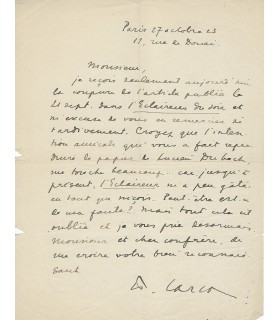 Paris 27 octobre 23
11, rue de Douai.
Monsieur,
je reçois seulement aujourd'hui
la coupure de l'article publié le
21 sept. dans l'Eclaireur du soir et
m'excuse de vous en remercier si
tardivement. Croyez que l'inten
tion amicale qui vous a fait repro
duire le papier de Lucien Dubech,
me touche beaucoup car jusqu'à
présent, l'Eclaireur m'a peu gâté
en tant que niçois. Peut-être est-ce
de ma faute? Mais tout cela est
oublié et je vous prie désormais
Monsieur et cher confrère, de
me croire votre bien reconnais
sant
F. Carco